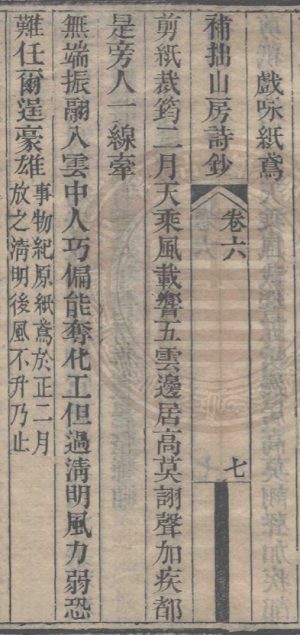 戲咏紙鳶
補拙山房詩鈔 卷六 七
剪紙裁筠二月天乘風載響五雲邊居高莫詡聲加疾都
是旁人一線牽
無端振翮入雲中人巧偏能奪化工但過淸明風力弱恐
難任爾逞豪雄事物紀原紙鳶於正二月
放之淸明後風不升乃止